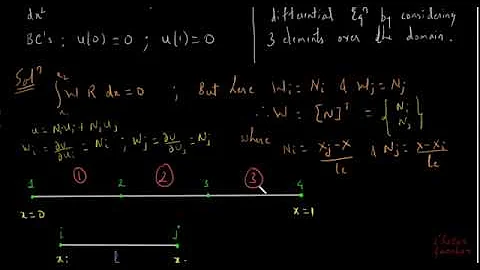 dx²
BC's ; u(0) = 0 ; u(1) = 0
differential Eqⁿ by considering
3 elements over the domain.
Solⁿ
∫ W R dx = 0 ; But here Wi = Ni & Wj = Nj
x₂
∴ W = [N]ᵀ = { Ni Nj }
u = NiUi + NjUj
Wi = ∂u/∂Ui = Ni ; Wj = ∂u/∂Uj = Nj where
Ni = (xj - x)/le & Nj = (x - xi)/le
1 ① 2 ② 3 ③ 4
x=0 x=1
i j
xi l x